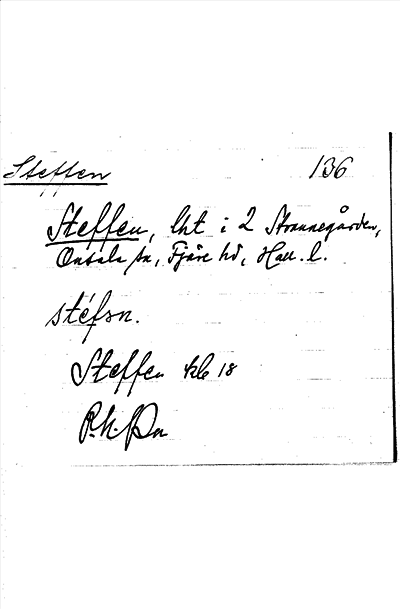 Steffen 136
Steffen, lht i 2 Strannegården,
Onsala sn, Fjäre hd, Hall. l.
stéfsn.
Steffen 18